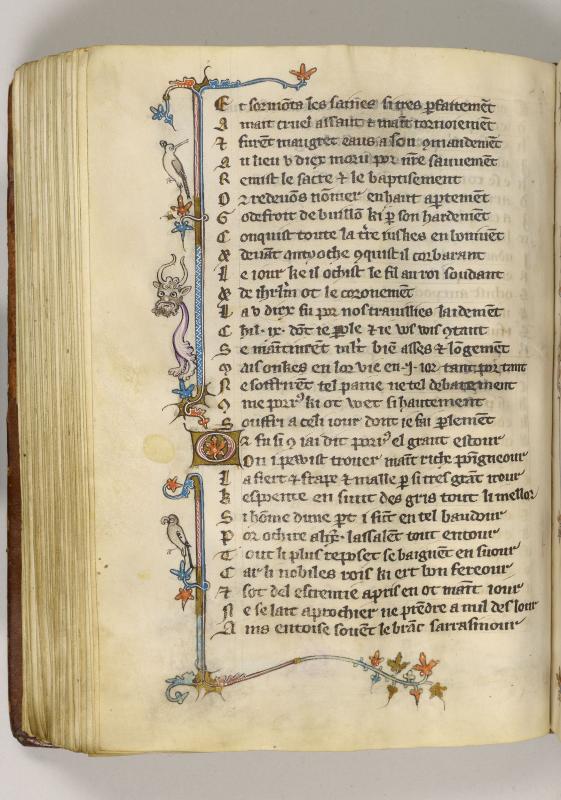 Et sormōta les saines si tres pfaitemēt
A maīt cruel assaut & maīt tornoiemēt
Et furēt maugret eaus a son 9mandemēt
Au lieu v diex moru por nr̄e sauuemēt
Remist le sacre & le baptisement
Or redeuōs nōmer en haut aptement
Godefroit de buillō ki p son hardemēt
Conquist toute la tr̄e iuskes en
& deuāt antyoche 9quist il corbarant
Le iour ke il ochist le fil au roi soudant
& de ihrl̄m ot le coronemēt
La v diex fu por nos trauillies laidemēt
Chil .ix. dōt ie ple & ie vos 9tant
Se maītinrēt ml̄t biē asses & lōgemēt
Mais onkes en lor vie en .i. ior tant por tant
Ne soffrirēt tel paine ne tel debatement
9me porr9 ki ot wet si hautement
Souffri a celi iour dont ie fai plemēt
Or fu si 9 iai dit porr9 el grant estour
On i peuist trouer maīt riche poīgneour
La fiert & frape & malle p si tres grāt irour
Kesprente en suiut des gris tout li mellor
Si hōme dune pt i fūt en tel baudour
Por ochire alix̄. lassalēt tout entour
Tout li plus reposet se baignēt en suour
Car li nobiles rois ki ert bon fereour
Et sot del escremie apris en ot maīt iour
Ne se lait aprochier ne prēdre a nul des lour
Ains entoise souēt le brāc sarrasinour